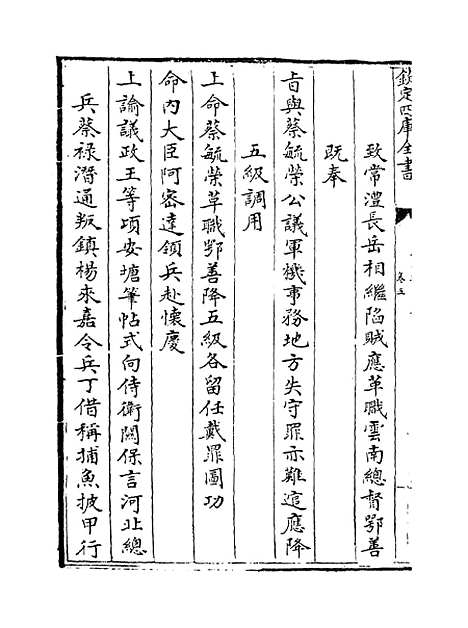 欽定四庫全書
卷五
致常澧長岳相繼陷賊應革職雲南總督鄂善
既奉
旨與蔡毓榮公議軍機事務地方失守罪亦難逭應降
五級調用
上命蔡毓榮革職鄂善降五級各留任戴罪圖功
命內大臣阿密達領兵赴懷慶
上諭議政王等頃安塘筆帖式向侍衛關保言河北總
兵蔡祿潛通叛鎮楊來嘉令兵丁借稱捕魚披甲行